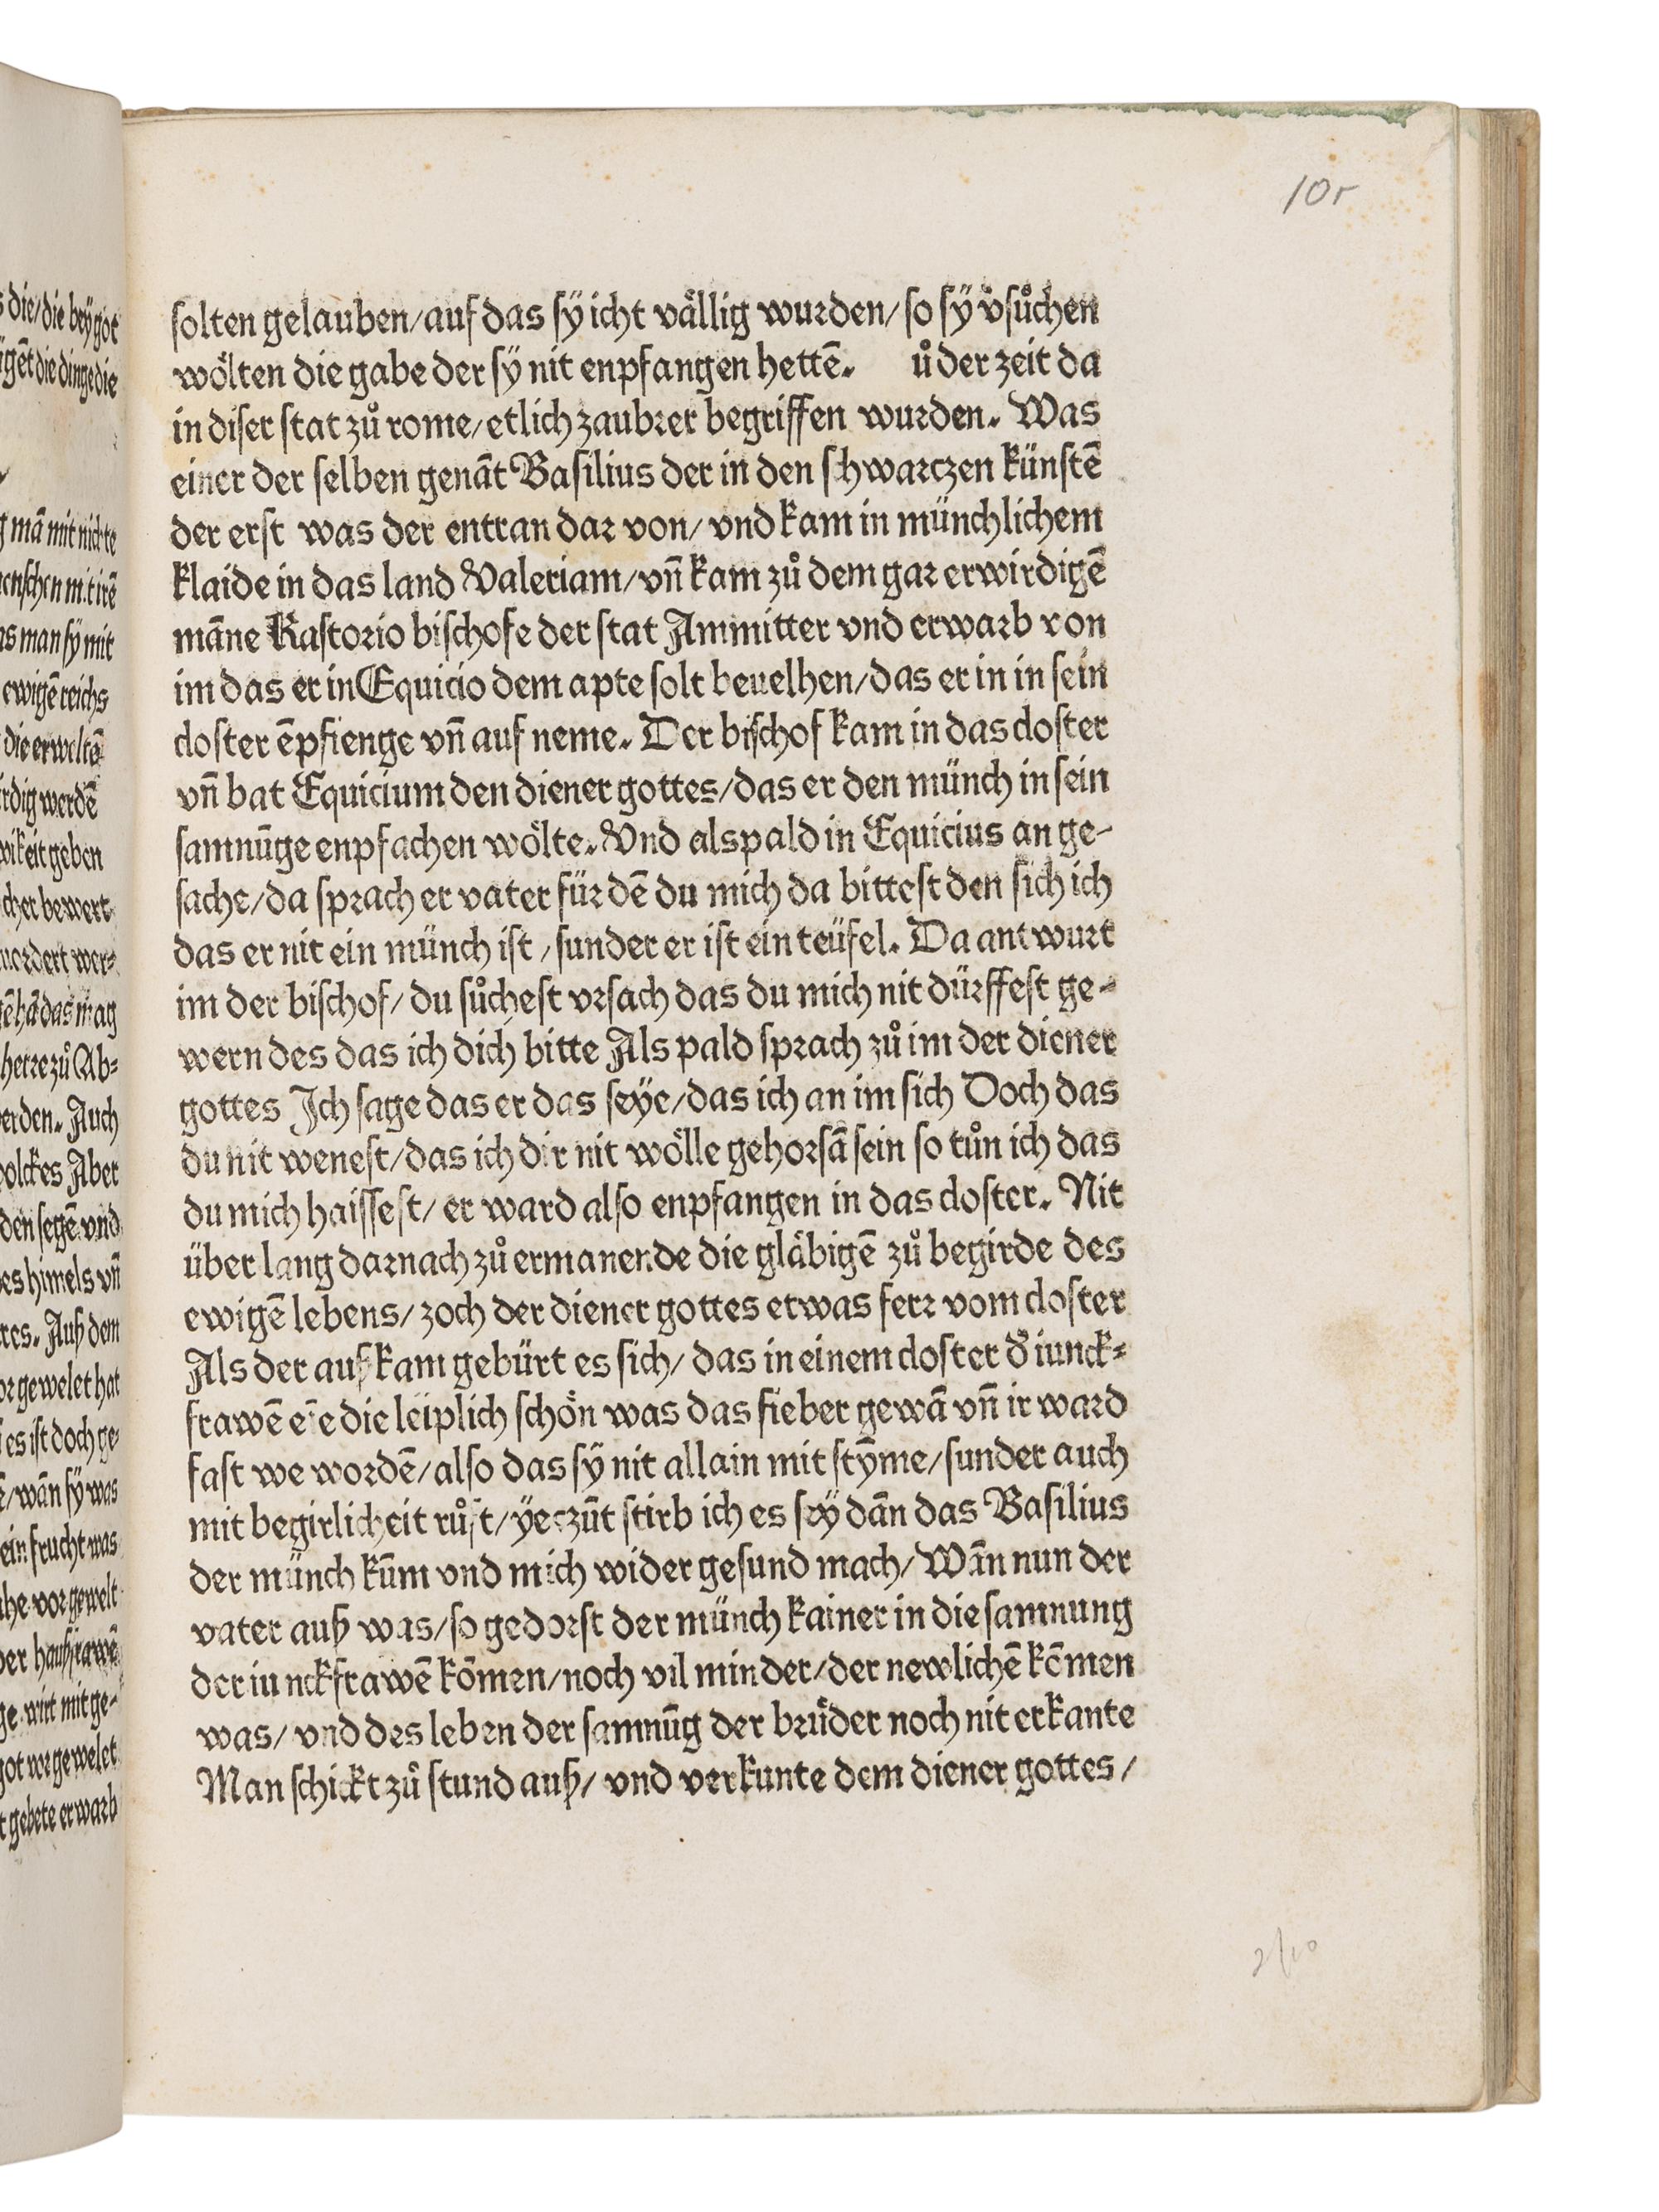 10r
solten gelauben/auf das sÿ icht vållig wurden/so sÿ v̊sůchen
wo̊lten die gabe der sÿ nit enpfangen hettē. ů der zeit da
in diser stat zů rome/etlich zaubrer begriffen wurden. Was
einer der selben genāt Basilius der in den schwarczen künstē
der erst was der entran dar von/vnd kam in münchlichem
klaide in das land Valeriam/vn̄ kam zů dem gar erwirdigē
māne Kastorio bischofe der stat Ammitter vnd erwarb von
im das er in Equicio dem apte solt beuelhen/das er in in sein
closter ēpfienge vn̄ auf neme. Der bischof kam in das closter
vn̄ bat Equicium den diener gottes/das er den münch in sein
samnūge enpfachen wo̊lte. Vnd als pald in Equicius an ge-
sache/da sprach er vater für dē du mich da bittest den sich ich
das er nit ein münch ist/sunder er ist ein teüfel. Da antwurt
im der bischof/du sůchest vrsach das du mich nit dürffest ge-
wern des das ich dich bitte Als pald sprach zů im der diener
gottes Ich sage das er das seÿe/das ich an im sich Doch das
du nit wenest/das ich dir nit wo̊lle gehorsā sein so tůn ich das
du mich haissest/er ward also enpfangen in das closter. Nit
über lang darnach zů ermanende die glåbigē zů begirde des
ewigē lebens/zoch der diener gottes etwas ferr vom closter
Als der auß kam gebürt es sich/das in einem closter d̊ iunck-
frawē eīe die leiplich scho̊n was das fieber gewā vn̄ ir ward
fast we wordē/also das sÿ nit allain mit stȳme/sunder auch
mit begirlicheit růft/ÿeczūt stirb ich es seÿ dān das Basilius
der münch kūm vnd mich wider gesund mach/Wān nun der
vater auß was/so gedorst der münch kainer in die samnung
der iunckfrawē kōmen/noch vil minder/der newlichē kōmen
was/vnd des leben der samnūg der brůder noch nit erkante
Man schickt zů stund auß/vnd verkunte dem diener gottes/
2/10